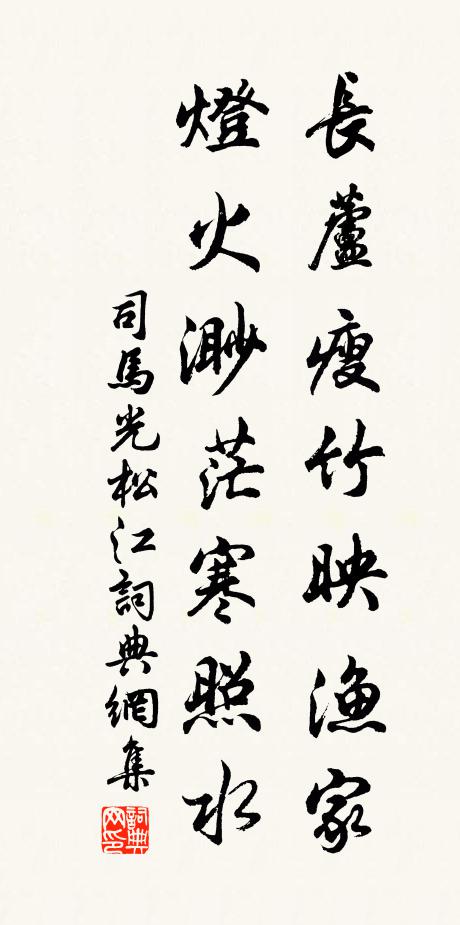 長蘆瘦竹映漁家
燈火渺茫寒照水
司馬光松江詞典網集
詞典
网印